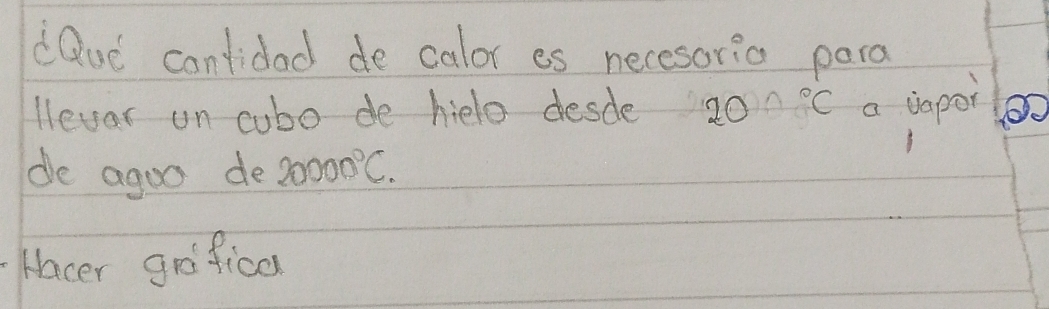 ¿Qué cantidad de calor es necesaria para
llevar un cubo de hielo desde 20 °C a vapor
de agua de 20000°C.
- Hacer gráfica